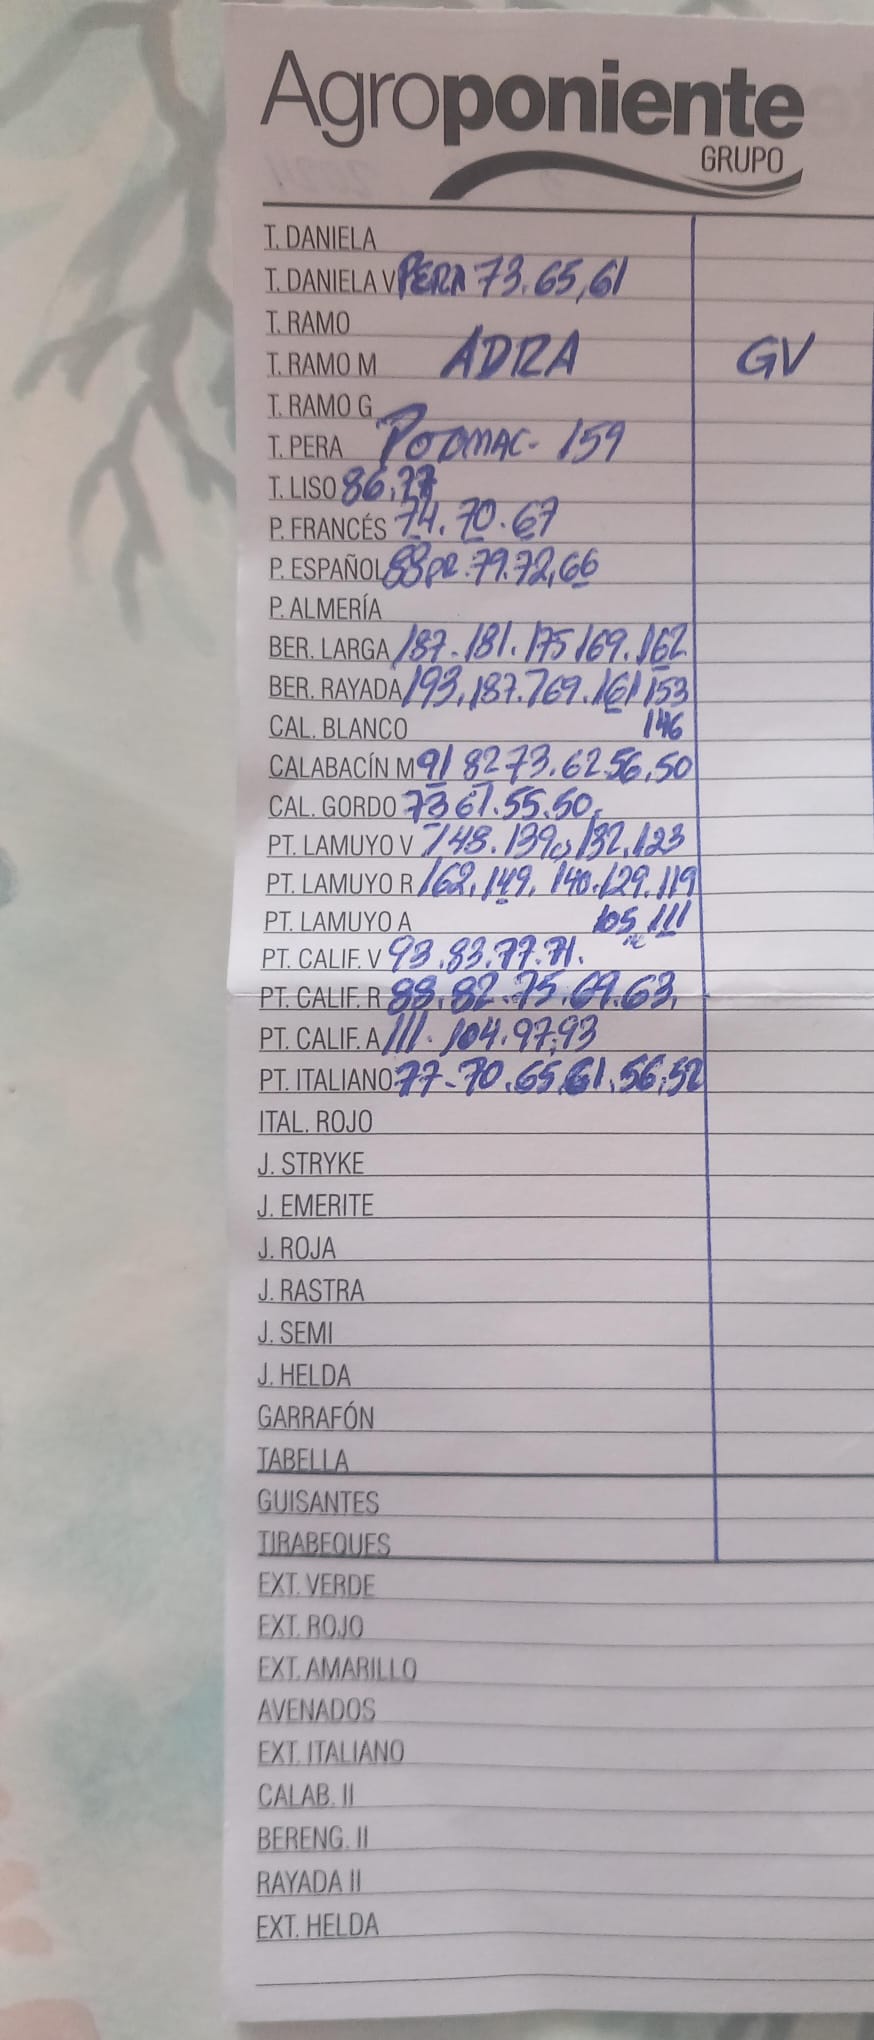 Agroponiente
GRUPO
T. DANIELA
T. DANIELA V PERA 73.65,61
T. RAMO
T. RAMO M ADRA GV
T. RAMO G
T. PERA POOMAC- 159
T. LISO 86,77
P. FRANCÉS 74.70.67
P. ESPAÑOL 88 PR.79.72,66
P. ALMERÍA
BER. LARGA 187-181.175 169.162
BER. RAYADA 193,187.769.161 153
CAL. BLANCO 146
CALABACÍN M 91 82 73.62 56.50
CAL. GORDO 73 61.55.50.
PT. LAMUYO V 148.139,132,123
PT. LAMUYO R 162,149,140.129.119
PT. LAMUYO A 105,111
PT. CALIF. V 93.83.77.71.
PT. CALIF. R 88.82.75.69.63,
PT. CALIF. A 111.104.97,93
PT. ITALIANO 77-70.65,61.56,52
ITAL. ROJO
J. STRYKE
J. EMERITE
J. ROJA
J. RASTRA
J. SEMI
J. HELDA
GARRAFÓN
TABELLA
GUISANTES
TIRABEQUES
EXT. VERDE
EXT. ROJO
EXT. AMARILLO
AVENADOS
EXT. ITALIANO
CALAB. II
BERENG. II
RAYADA II
EXT. HELDA